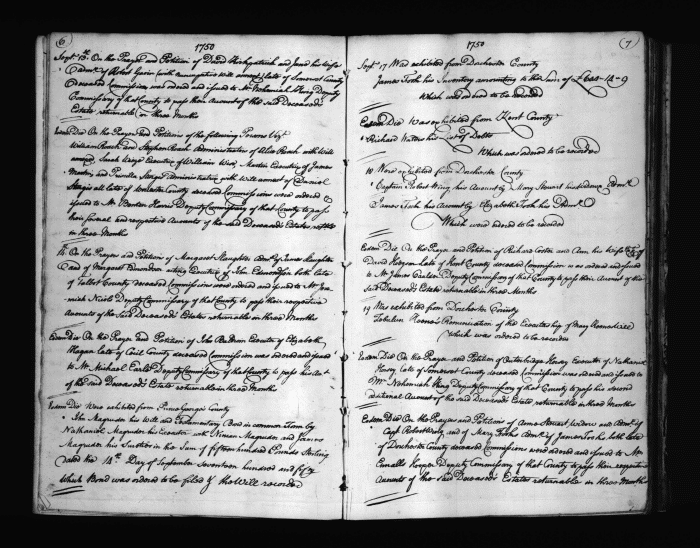 6
1750
Sept. 13. On the Prayer and Petition of David Kirkpatrick and Jane his Wife
Admx. of Robert Gavin (with annexed) late of Somerset County
Deceased Commission was ordered and issued to Mr. Nehemiah King Deputy
Commissary of that County to pass then Account of the said Deceased's
Estate returnable in three Months
Eodem Die On the Prayer and Petitions of the following Persons Vizt.
William Roach and Stephen Roach Administrator of Alice Roach with Will
annexed, Sarah Wise Executrix of William Wise, Executrix of James
and Priscilla Administratrix with Will annexed of Daniel
late of Worcester County deceased Commissions were ordered &
issued to Mr. Benton Harris Deputy Commissary of that County to pass
their several and respective Accounts of the said Deceased's Estates returnable
in three Months
14. On the Prayer and Petitions of Margaret Slaughter Admx. of James Slaughter
and of Margaret Edmondson acting Executrix of John Edmondson both late
of Talbot County deceased Commissions were ordered and issued to Mr.
Nicols Deputy Commissary of that County to pass their respective
Accounts of the said Deceased's Estates returnable in three Months
Eodem Die On the Prayer and Petition of John Baldwin Executor of Elizabeth
Hagan late of Cecil County deceased Commission was ordered and issued
to Mr. Michael Earle Deputy Commissary of that County to pass his Acct.
of the said Deceased's Estate returnable in three Months
Eodem Die Were exhibited from Prince Georges County
John Magruder his Will and Testamentary Bond in common Form by
Nathaniel Magruder his Executor with Ninian Magruder and James
Magruder his Sureties in the Sum of fifteen hundred Pounds Sterling
dated the 14th. Day of September Seventeen hundred and fifty
Which Bond was ordered to be filed & the Will recorded
1750
7
Sept. 17 Was exhibited from Dorchester County
James Tosh his Inventory amounting to the Sum of
Which was ordered to be recorded
Eodem Die Was exhibited from Kent County
Richard his List of Debts
Which was ordered to be recorded
18 Were exhibited from Dorchester County
Captain Robert Wing his Account by
James Tosh his Account by Elizabeth Tosh his Admx.
Which were ordered to be recorded
Eodem Die On the Prayer and Petition of Richard Coston and Ann his Wife
David late of Kent County deceased Commission was ordered and issued
to Mr. James Deputy Commissary of that County to pass their Account of the
said Deceased's Estate returnable in three Months
19 Was exhibited from Dorchester County
Renunciation of the Executorship of Mary
Which was ordered to be recorded
Eodem Die On the Prayer and Petition of Outerbridge Horsey Executor of Nathaniel
Horsey late of Somerset County deceased Commission was ordered and issued to
Mr. Nehemiah King Deputy Commissary of that County to pass his second
additional Account of the said Deceased's Estate returnable in three Months
Eodem Die On the Prayer and Petitions of Admx. of
Capt. Robert Wing and of Mary Tosh Admx. of James Tosh both late
of Dorchester County deceased Commissions were ordered and issued to Mr.
Ennalls Hooper Deputy Commissary of that County to pass their respective
Accounts of the said Deceased's Estates returnable in three Months